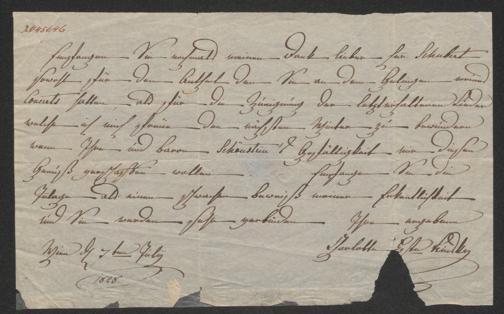 2045646
Empfangen Sie nochmals meinen Dank lieber Schubert
sowohl für den Antheil den Sie an dem Gelingen meines
Concerts hatten, als für die Zueignung der
welche ich mich freue den nächsten Winter zu
wenn Ihre und baron Schönstein's Gefälligkeit mir diesen
Genuß verschaffen wollen. Empfangen Sie die
Zulage als einen schwachen beweiß meiner Erkentlichkeit
und Sie werden sehr verbinden Ihre ergebene
Wien d 7ten July
1828